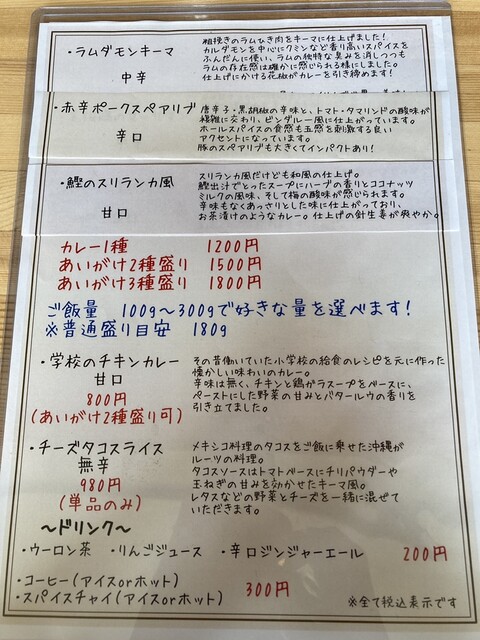 ・ラムダモンキーマ
中辛
粗挽きのラムひき肉をキーマに仕上げました!
カルダモンを中心にクミンなど香り高いスパイスを
ふんだんに使い、ラムの独特な臭みを消しつつも
ラムの存在感は確かに感じられる様にしました。
仕上げにかける花椒がカレーを引き締めます!
・赤辛ポークスペアリブ
辛口
唐辛子・黒胡椒の辛味と、トマト・タマリンドの酸味が
複雑に交わり、ビンダルー風に仕上がっています。
ホールスパイスの食感も五感を刺激する良い
アクセントになっています。
豚のスペアリブも大きくてインパクトあり!
・鰹のスリランカ風
甘口
スリランカ風だけども和風の仕上げ。
鰹出汁でとったスープにハーブの香りとココナッツ
ミルクの風味、そして梅の酸味が感じられます。
辛味もなくあっさりとした味に仕上がっており、
お茶漬けのようなカレー。仕上げの針生姜が爽やか。
カレー1種 1200円
あいがけ2種盛り 1500円
あいがけ3種盛り 1800円
ご飯量 100g〜300gで好きな量を選べます!
※普通盛り目安 180g
・学校のチキンカレー
甘口
800円
(あいがけ2種盛り可)
その昔働いていた小学校の給食のレシピを元に作った
懐かしい味わいのカレー。
辛味は無く、チキンと鶏がらスープをベースに、
ペーストにした野菜の甘みとバタールウの香りを
引き立てました。
・チーズタコスライス
無辛
980円
(単品のみ)
メキシコ料理のタコスをご飯に乗せた沖縄が
ルーツの料理。
タコスソースはトマトベースにチリパウダーや
玉ねぎの甘みを効かせたキーマ風。
レタスなどの野菜とチーズを一緒に混ぜて
いただきます。
〜ドリンク〜
・ウーロン茶 ・りんごジュース ・辛口ジンジャーエール 200円
・コーヒー(アイスorホット)
・スパイスチャイ(アイスorホット) 300円
※全て税込表示です